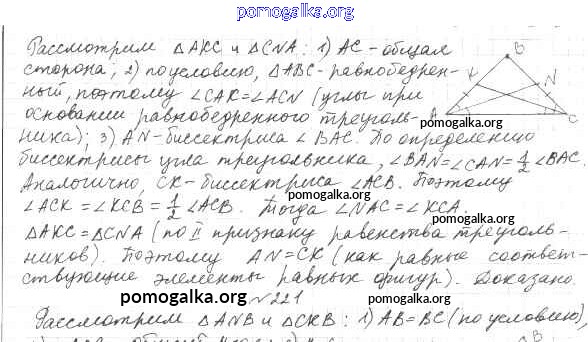 pomogalka.org
Рассмотрим △AKC и △CNA: 1) AC - общая
сторона; 2) по условию, △ABC - равнобедрен-
ный, поэтому ∠CAK=∠ACN (углы при
основании равнобедренного треуголь-
ника); 3) AN - биссектриса ∠BAC. По определению
биссектрисы угла треугольника, ∠BAN=∠CAN=1/2 ∠BAC.
Аналогично, CK - биссектриса ∠ACB. Поэтому
∠ACK=∠KCB=1/2 ∠ACB. Тогда ∠NAC=∠KCA.
△AKC=△CNA (по II признаку равенства треуголь-
ников). Поэтому AN=CK (как равные соответ-
ствующие элементы равных фигур). Доказано.
B
K
N
A
C
pomogalka.org
pomogalka.org
pomogalka.org
pomogalka.org
pomogalka.org
pomogalka.org
№221
Рассмотрим △ANB и △CKB: 1) AB=BC (по условию),
B